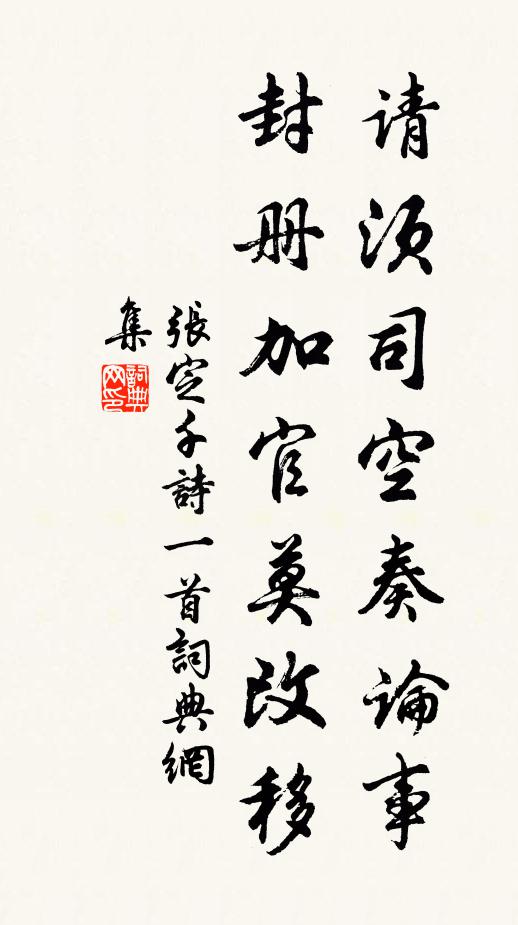 请须司空奏論事
封册加官莫改移
張定千詩一首詞典網
集
詞典
网印